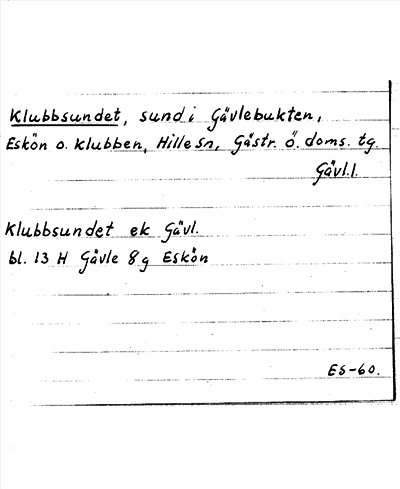 Klubbsundet, sund i Gävlebukten,
Eskön o. Klubben, Hille sn, Gästr. ö. doms. tg.
Gävl.l.
Klubbsundet ek Gävl.
bl. 13 H Gävle 8g Eskön
ES-60.